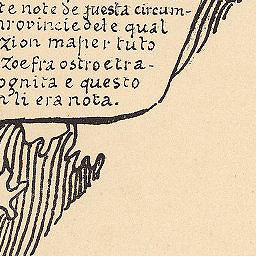 te note de questa circum-
provincie del e qual
zion ma per tuto
zoe fra ostro e tra-
ognita e questo
n li era nota.